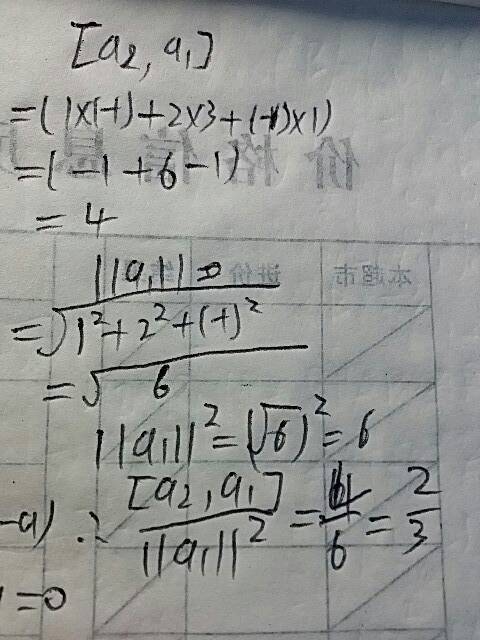 [a₂, a₁]
=(1×(-1)+2×3+(-1)×1)
=(-1+6-1)
=4
||a₁||=
=√1²+2²+(-1)²
=√6
||a₁||²=(√6)²=6
-a) ∴ [a₂,a₁]/||a₁||² = 4/6 = 2/3
=0
价格信息
本超市 进价